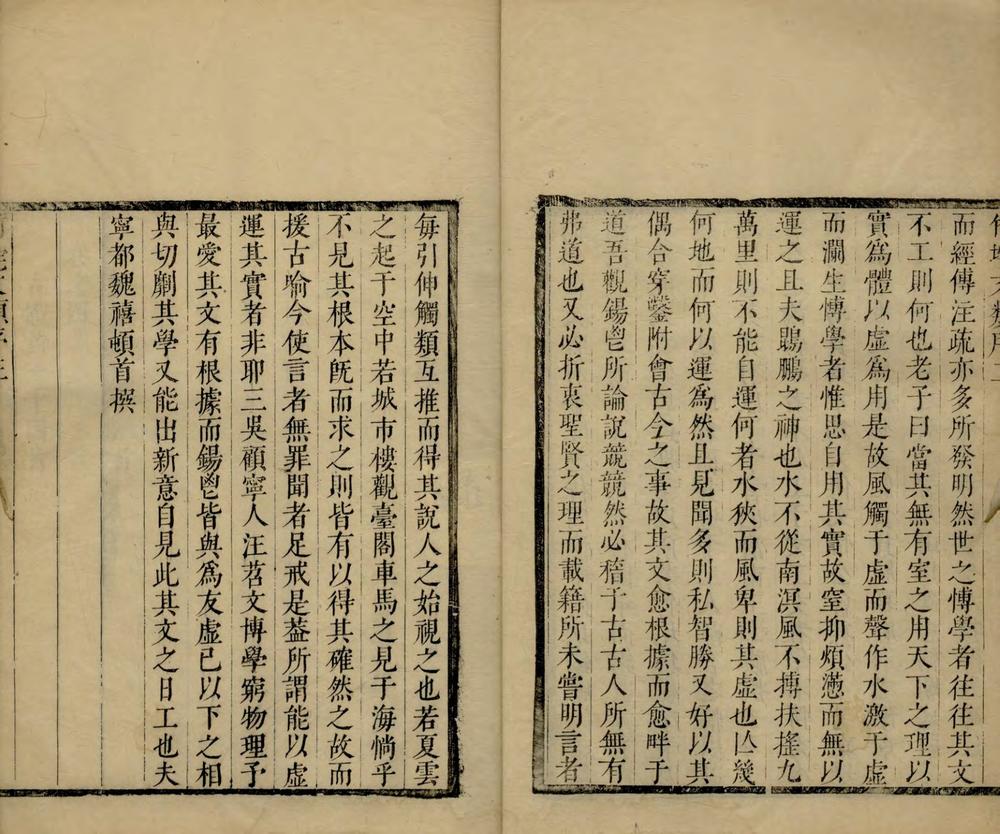 而經傳注疏亦多所發明然世之慱學者往往其文
不工則何也老子曰當其無有室之用天下之理以
實爲體以虛爲用是故風觸于虛而聲作水激于虛
而瀾生慱學者惟思自用其實故窒抑煩懣而無以
運之且夫鵾鵬之神也水不從南溟風不搏扶搖九
萬里則不能自運何者水狹而風卑則其虛也亾幾
何地而何以運爲然且見聞多則私智勝又好以其
偶合穿鑿附會古今之事故其文愈根據而愈畔于
道吾觀錫鬯所論說兢兢然必稽于古古人所無有
弗道也又必折衷聖賢之理而載籍所未嘗明言者
每引伸觸類互推而得其說人之始視之也若夏雲
之起于空中若城市樓觀臺閣車馬之見于海惝乎
不見其根本旣而求之則皆有以得其確然之故而
援古喻今使言者無罪聞者足戒是葢所謂能以虛
運其實者非耶三吳顧寧人汪苕文博學窮物理予
最愛其文有根據而錫鬯皆與爲友虛已以下之相
與切劘其學又能出新意自見此其文之日工也夫
寧都魏禧頓首撰